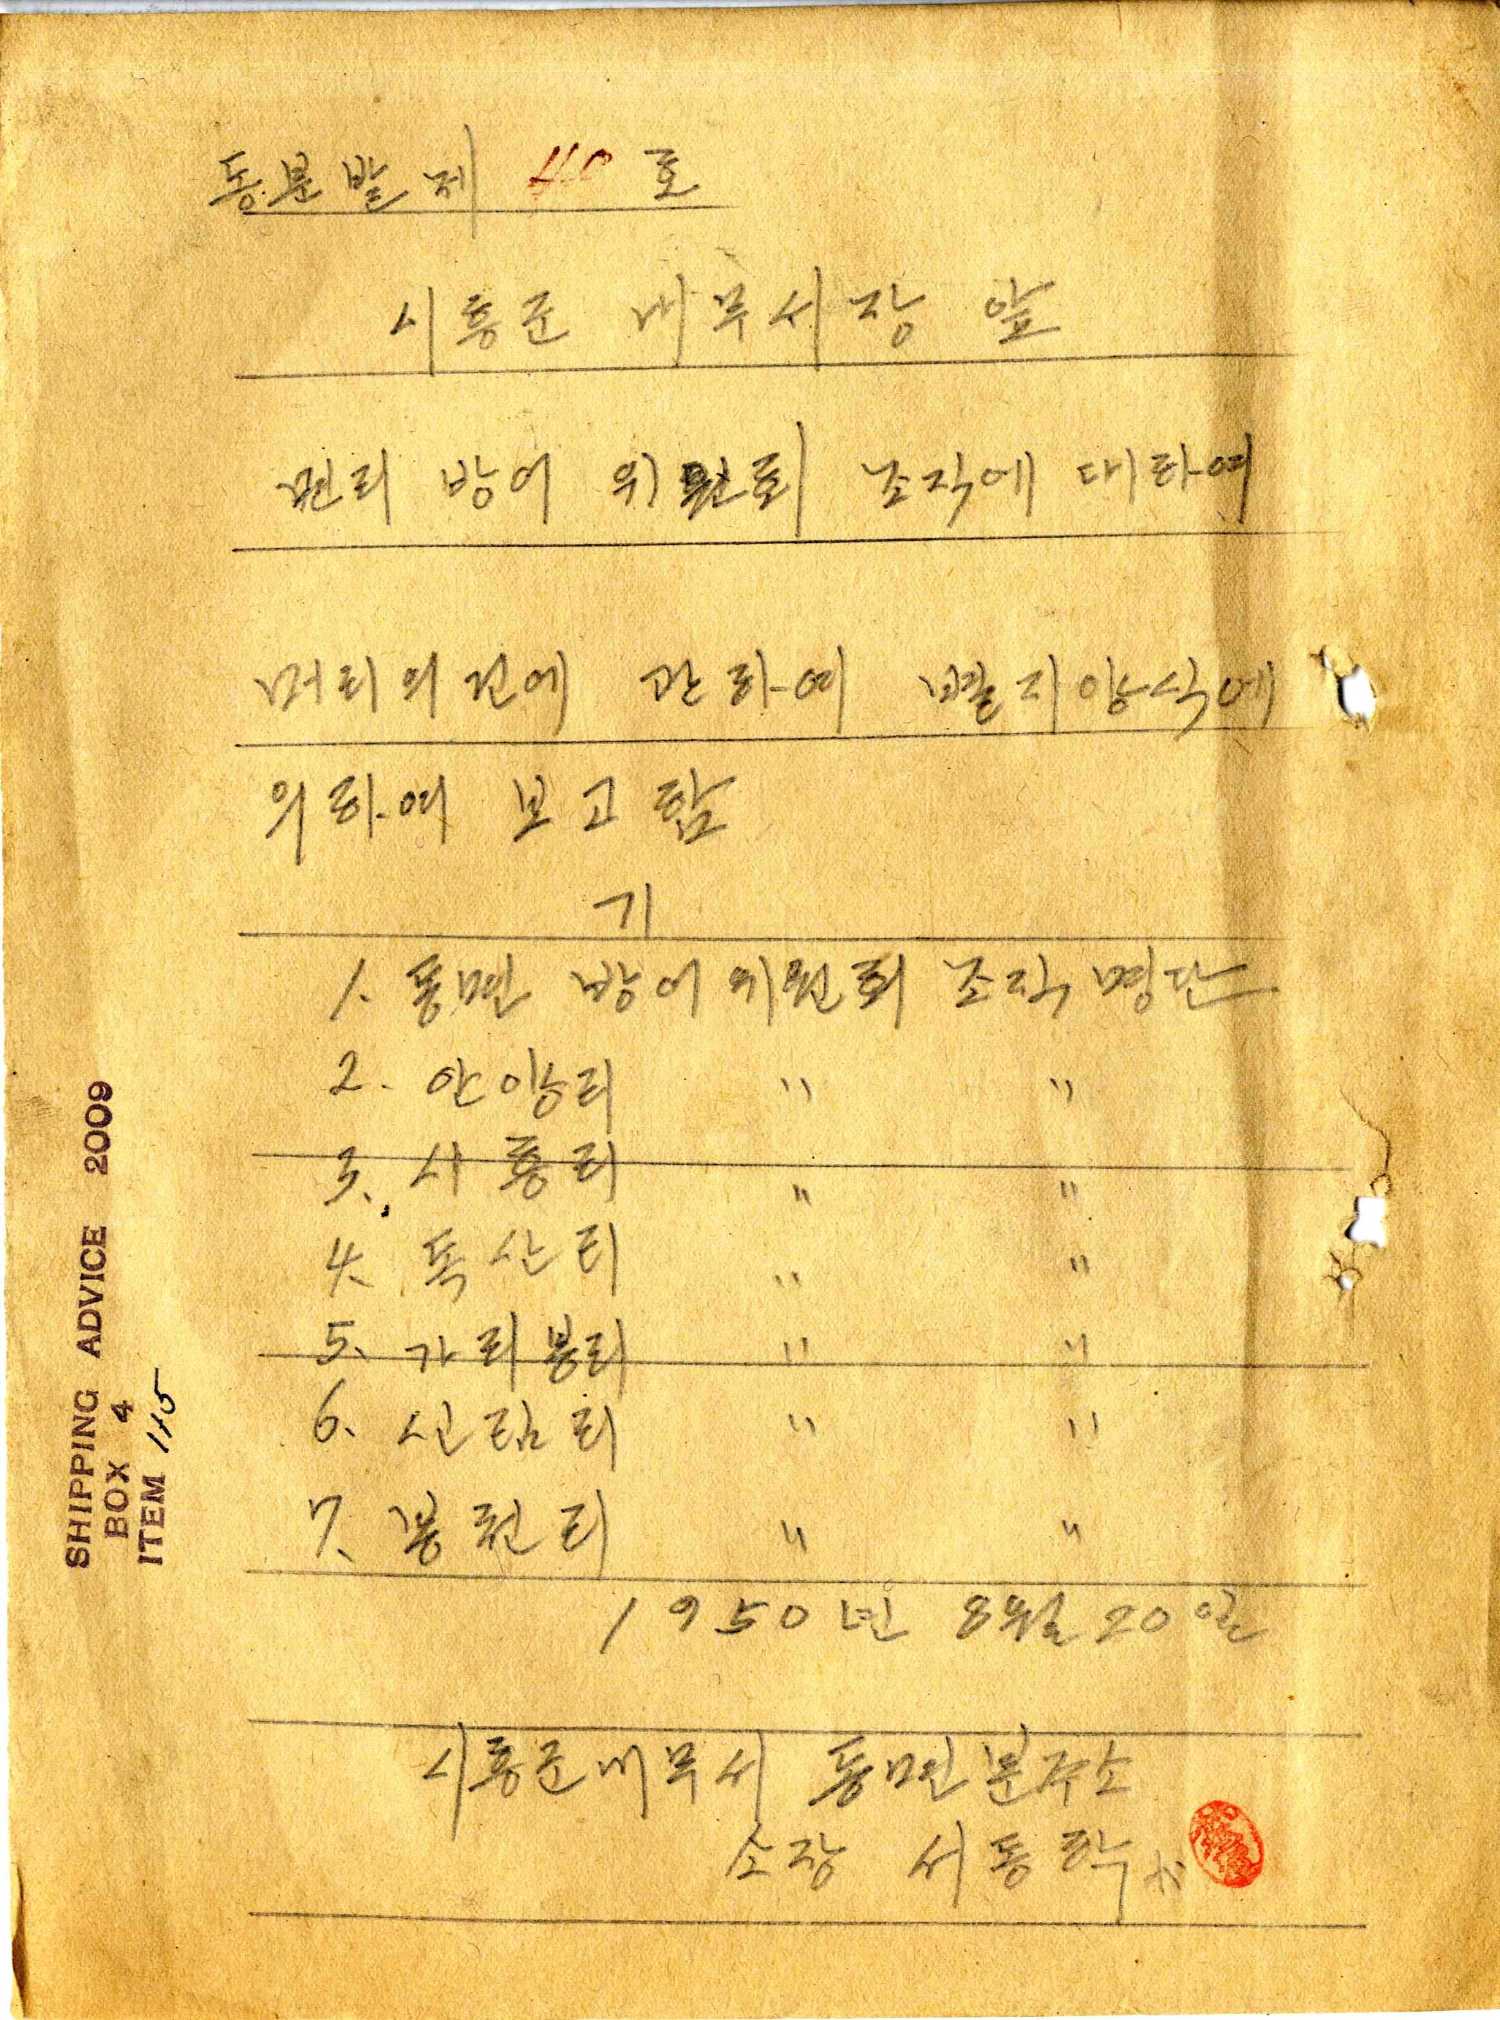 동분발제 40 호
시흥군 내무서장 앞
면리 방어 위원회 조직에 대하여
머리의건에 관하여 별지양식에
의하여 보고함
기
1. 동면 방어위원회 조직 명단
2. 안양리 〃 〃
3. 시흥리 〃 〃
4. 독산리 〃 〃
5. 가리봉리 〃 〃
6. 신림리 〃 〃
7. 봉천리 〃 〃
1950년 8월 20일
시흥군내무서 동면분주소
소장 서동학
SHIPPING ADVICE 2009
BOX 4
ITEM 115